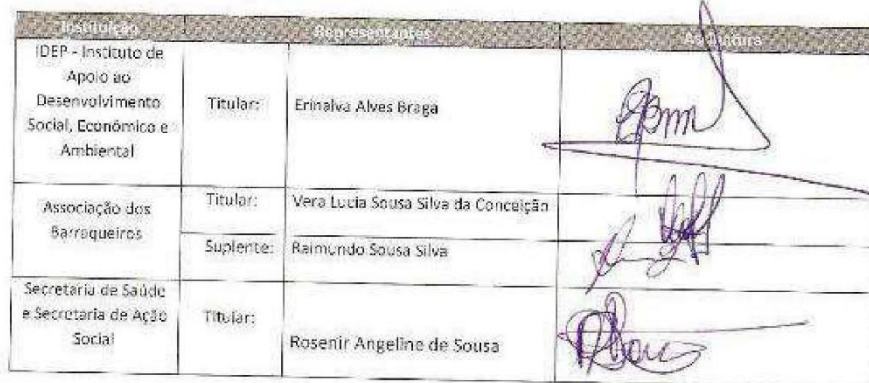 Instituição Representantes Assinatura
IDEP - Instituto de
Apoio ao
Desenvolvimento
Social, Econômico e
Ambiental
Titular: Erinalva Alves Braga
Associação dos
Barraqueiros
Titular: Vera Lucia Sousa Silva da Conceição
Suplente: Raimundo Sousa Silva
Secretaria de Saúde
e Secretaria de Ação
Social
Titular:
Rosenir Angeline de Sousa